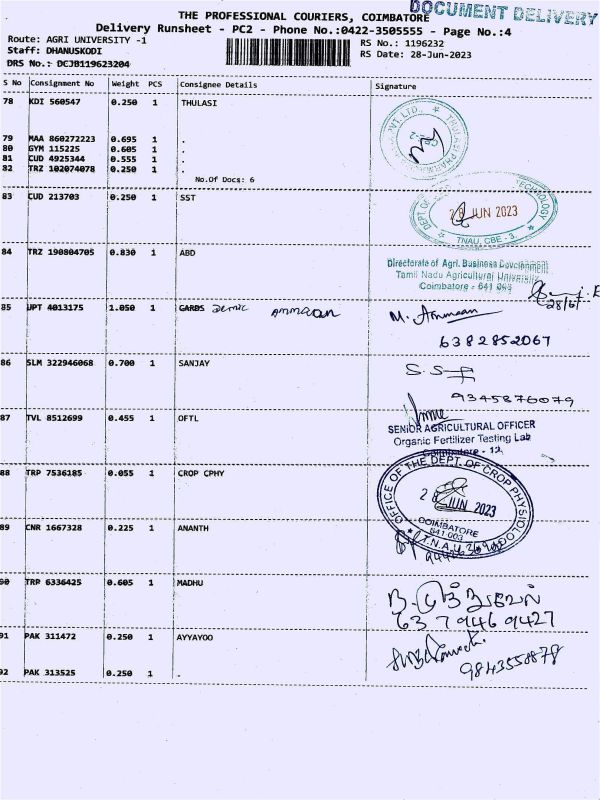 DOCUMENT DELIVERY
THE PROFESSIONAL COURIERS, COIMBATORE
Delivery Runsheet - PC2 - Phone No.:0422-3505555 - Page No.:4
Route: AGRI UNIVERSITY -1
RS No.: 1196232
Staff: DHANUSKODI
RS Date: 28-Jun-2023
DRS No.: DCJB119623204
S No Consignment No Weight PCS Consignee Details Signature
78 KDI 560547 0.250 1 THULASI
79 MAA 860272223 0.695 1 .
80 GYM 115225 0.605 1 .
81 CUD 4925344 0.555 1 .
82 TRZ 102074078 0.250 1 .
No.Of Docs: 6
83 CUD 213703 0.250 1 SST
28 JUN 2023
TNAU, CBE - 3.
84 TRZ 190804705 0.830 1 ABD
Directorate of Agri. Business Development
Tamil Nadu Agricultural University
Coimbatore - 641 003
28/6/
85 UPT 4013175 1.050 1 GARDS
M. Ammaan
6382852067
86 SLM 322946068 0.700 1 SANJAY
S.S
9345876079
87 TVL 8512699 0.455 1 OFTL
SENIOR AGRICULTURAL OFFICER
Organic Fertilizer Testing Lab
Coimbatore - 12
88 TRP 7536185 0.055 1 CROP CPHY
OFFICE OF THE DEPT. OF CROP PHYSIOLOGY
28 JUN 2023
COIMBATORE
641 003
T.N.A.U.
89 CNR 1667328 0.225 1 ANANTH
90 TRP 6336425 0.605 1 MADHU
637 946 9427
91 PAK 311472 0.250 1 AYYAYOO
9843550878
92 PAK 313525 0.250 1 .